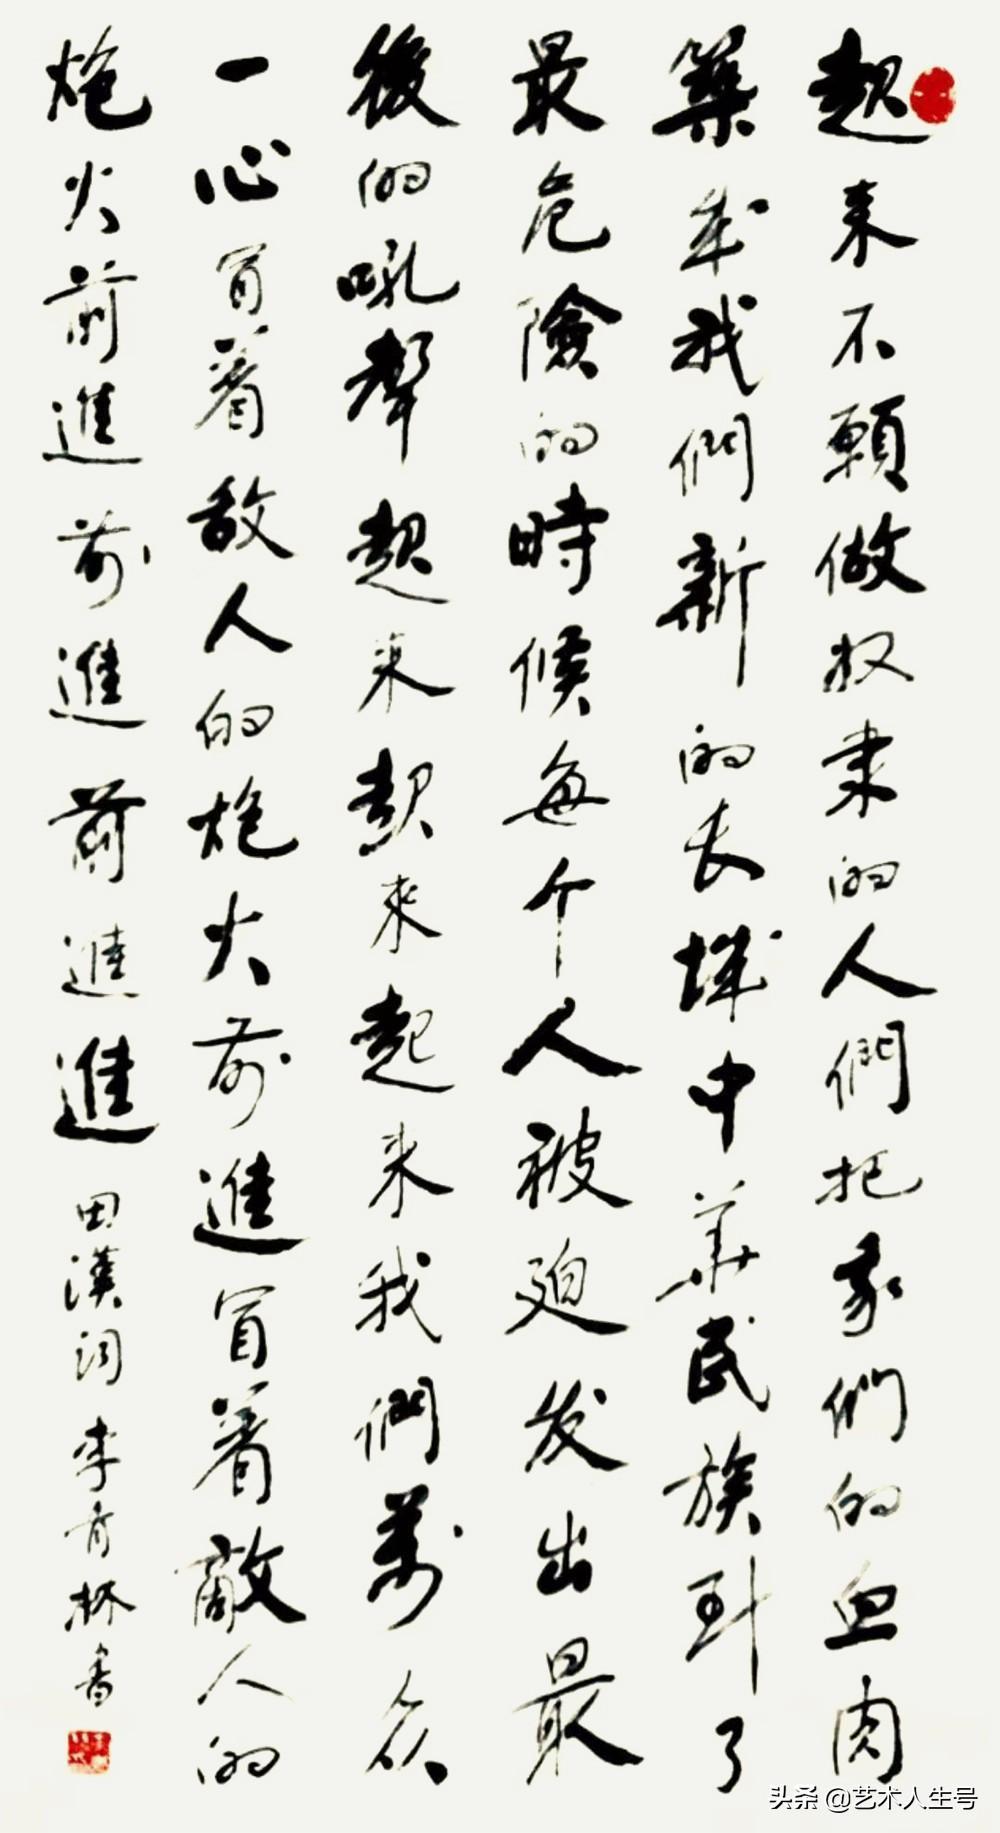 起来不願做奴隶的人們把我們的血肉
築成我們新的长城中華民族到了
最危險的時候每个人被迫发出最
後的吼聲起来起來起来我們萬众
一心冒着敌人的炮火前進冒着敵人的
炮火前進前進前進進 田漢词 李 林書
头条 @艺术人生号